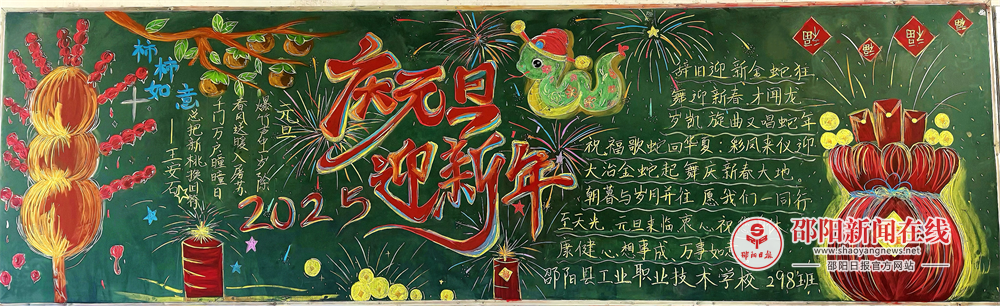 柿柿如意
元旦
爆竹声中一岁除
春风送暖入屠苏
千门万户曈曈日
总把新桃换旧符
——王安石
庆元旦
迎新年
2025
福
福
福
福
辞旧迎新金蛇狂,
舞迎新春才闻龙
岁凯旋曲又唱蛇年
祝福歌蛇回华夏:彩凤来仪迎
大治金蛇起舞庆新春大地。
朝暮与岁月并往 愿我们一同行
至天光。元旦来临衷心祝
康健心想事成 万事如
邵阳县工业职业技术学校 298班
邵阳日报
邵阳新闻在线
www.shaoyangnews.net
邵阳日报官方网站